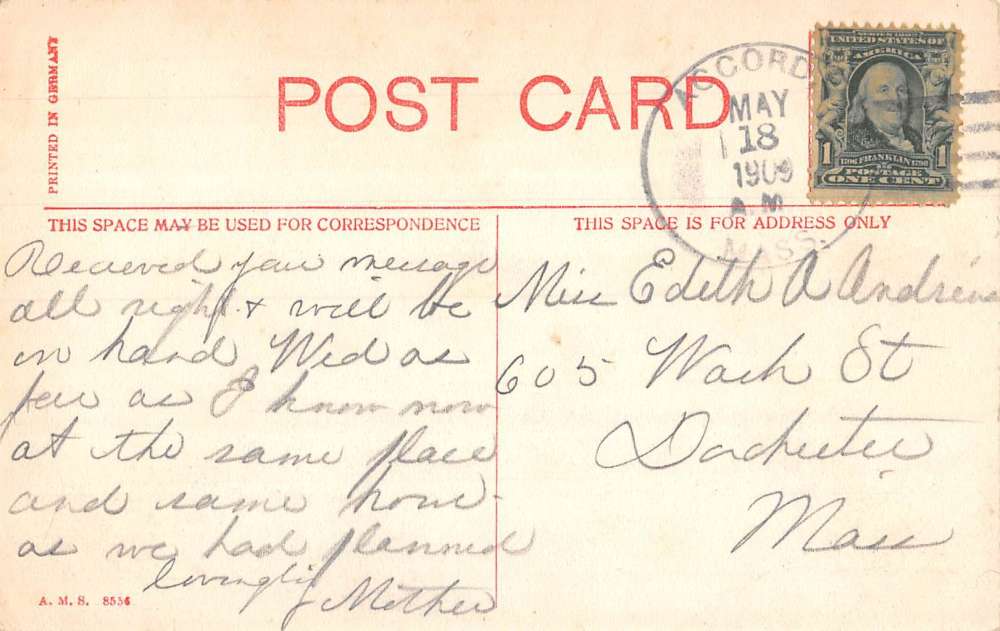 PRINTED IN GERMANY
POST CARD
ACCORD
MAY
18
1909
A.M.
MASS.
SERIES 1902
UNITED STATES OF
AMERICA
1 1706 FRANKLIN 1790 1
POSTAGE
ONE CENT
THIS SPACE MAY BE USED FOR CORRESPONDENCE
Recieved your message
all right & will be
on hand Wed as
far as I know now
at the same place
and same hour
as we had planned
lovingly
Mother
A. M. S. 8536
THIS SPACE IS FOR ADDRESS ONLY
Miss Edith A Andrews
605 Wash St
Dorchester
Mass